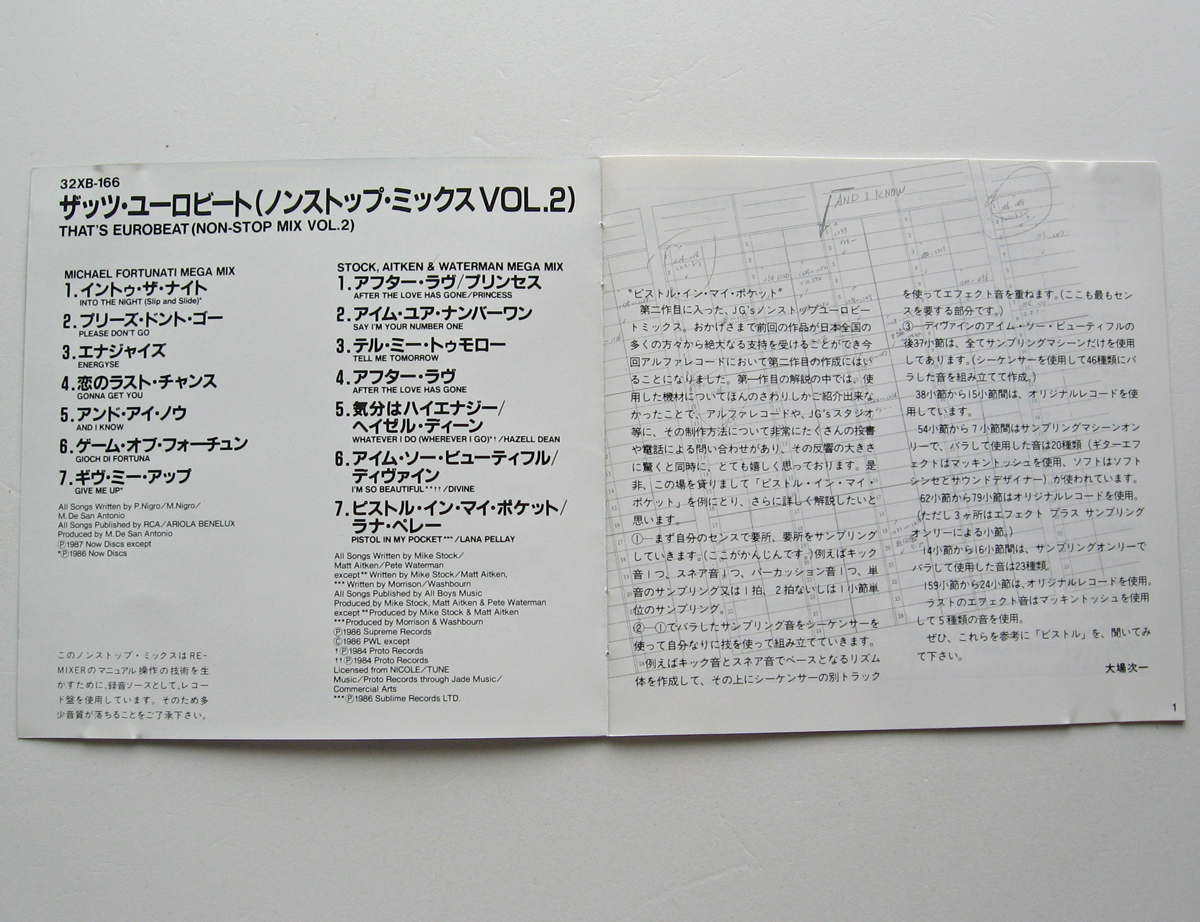 32XB-166
ザッツ・ユーロビート(ノンストップ・ミックス VOL.2)
THAT'S EUROBEAT(NON-STOP MIX VOL.2)
MICHAEL FORTUNATI MEGA MIX
1.イントゥ・ザ・ナイト
INTO THE NIGHT (Slip and Slide)*
2.プリーズ・ドント・ゴー
PLEASE DON'T GO
3.エナジャイズ
ENERGYSE
4.恋のラスト・チャンス
GONNA GET YOU
5.アンド・アイ・ノウ
AND I KNOW
6.ゲーム・オブ・フォーチュン
GIOCH DI FORTUNA
7.ギヴ・ミー・アップ
GIVE ME UP*
All Songs Written by P.Nigro/M.Nigro/
M.De San Antonio
All Songs Published by RCA/ARIOLA BENELUX
Produced by M.De San Antonio
Ⓟ1987 Now Discs except
*Ⓟ1986 Now Discs
このノンストップ・ミックスはRE-
MIXERのマニュアル操作の技術を生
かすために、録音ソースとして、レコー
ド盤を使用しています。そのため多
少音質が落ちることをご了承下さい。
STOCK, AITKEN & WATERMAN MEGA MIX
1.アフター・ラヴ/プリンセス
AFTER THE LOVE HAS GONE/PRINCESS
2.アイム・ユア・ナンバーワン
SAY I'M YOUR NUMBER ONE
3.テル・ミー・トゥモロー
TELL ME TOMORROW
4.アフター・ラヴ
AFTER THE LOVE HAS GONE
5.気分はハイエナジー/
ヘイゼル・ディーン
WHATEVER I DO (WHEREVER I GO)*†/HAZELL DEAN
6.アイム・ソー・ビューティフル/
ディヴァイン
I'M SO BEAUTIFUL**††/DIVINE
7.ピストル・イン・マイ・ポケット/
ラナ・ペレー
PISTOL IN MY POCKET***/LANA PELLAY
All Songs Written by Mike Stock/
Matt Aitken/Pete Waterman
except** Written by Mike Stock/Matt Aitken,
*** Written by Morrison/Washbourn
All Songs Published by All Boys Music
Produced by Mike Stock, Matt Aitken & Pete Waterman
except **Produced by Mike Stock & Matt Aitken
***Produced by Morrison & Washbourn
Ⓟ1986 Supreme Records
Ⓒ1986 PWL except
†Ⓟ1984 Proto Records
††Ⓟ1984 Proto Records
Licensed from NICOLE/TUNE
Music/Proto Records through Jade Music/
Commercial Arts
***Ⓟ1986 Sublime Records LTD.
AND I KNOW
"ピストル・イン・マイ・ポケット"
第二作目に入った、JG'sノンストップユーロビー
トミックス。おかげさまで前回の作品が日本全国の
多くの方々から絶大なる支持を受けることができ今
回アルファレコードにおいて第二作目の作成にはい
ることになりました。第一作目の解説の中では、使
用した機材についてほんのさわりしかご紹介出来な
かったことで、アルファレコードや、JG'sスタジオ
等に、その制作方法について非常にたくさんの投書
や電話による問い合わせがあり、その反響の大きさ
に驚くと同時に、とても嬉しく思っております。是
非、この場を貸りまして「ピストル・イン・マイ・
ポケット」を例にとり、さらに詳しく解説したいと
思います。
①―まず自分のセンスで要所、要所をサンプリング
していきます。(ここがかんじんです。)例えばキック
音1つ、スネア音1つ、パーカッション音1つ、単
音のサンプリング又は1拍、2拍ないしは1小節単
位のサンプリング。
②―①でバラしたサンプリング音をシーケンサーを
使って自分なりに技を使って組み立てていきます。
例えばキック音とスネア音でベースとなるリズム
体を作成して、その上にシーケンサーの別トラック
を使ってエフェクト音を重ねます。(ここも最もセン
スを要する部分です。)
③―ディヴァインのアイム・ソー・ビューティフルの
後37小節は、全てサンプリングマシーンだけを使用
してあります。(シーケンサーを使用して46種類にバ
ラした音を組み立てて作成。)
38小節から15小節間は、オリジナルレコードを使
用しています。
54小節から7小節間はサンプリングマシーンオン
リーで、バラして使用した音は20種類(ギターエフ
ェクトはマッキントッシュを使用、ソフトはソフト
シンセとサウンドデザイナー)が使われています。
62小節から79小節はオリジナルレコードを使用。
(ただし3ヶ所はエフェクト プラス サンプリング
オンリーによる小節。)
14小節から16小節間は、サンプリングオンリーで
バラして使用した音は23種類。
159小節から24小節は、オリジナルレコードを使用。
ラストのエフェクト音はマッキントッシュを使用
して5種類の音を使用。
ぜひ、これらを参考に「ピストル」を、聞いてみ
て下さい。
大場次一
1